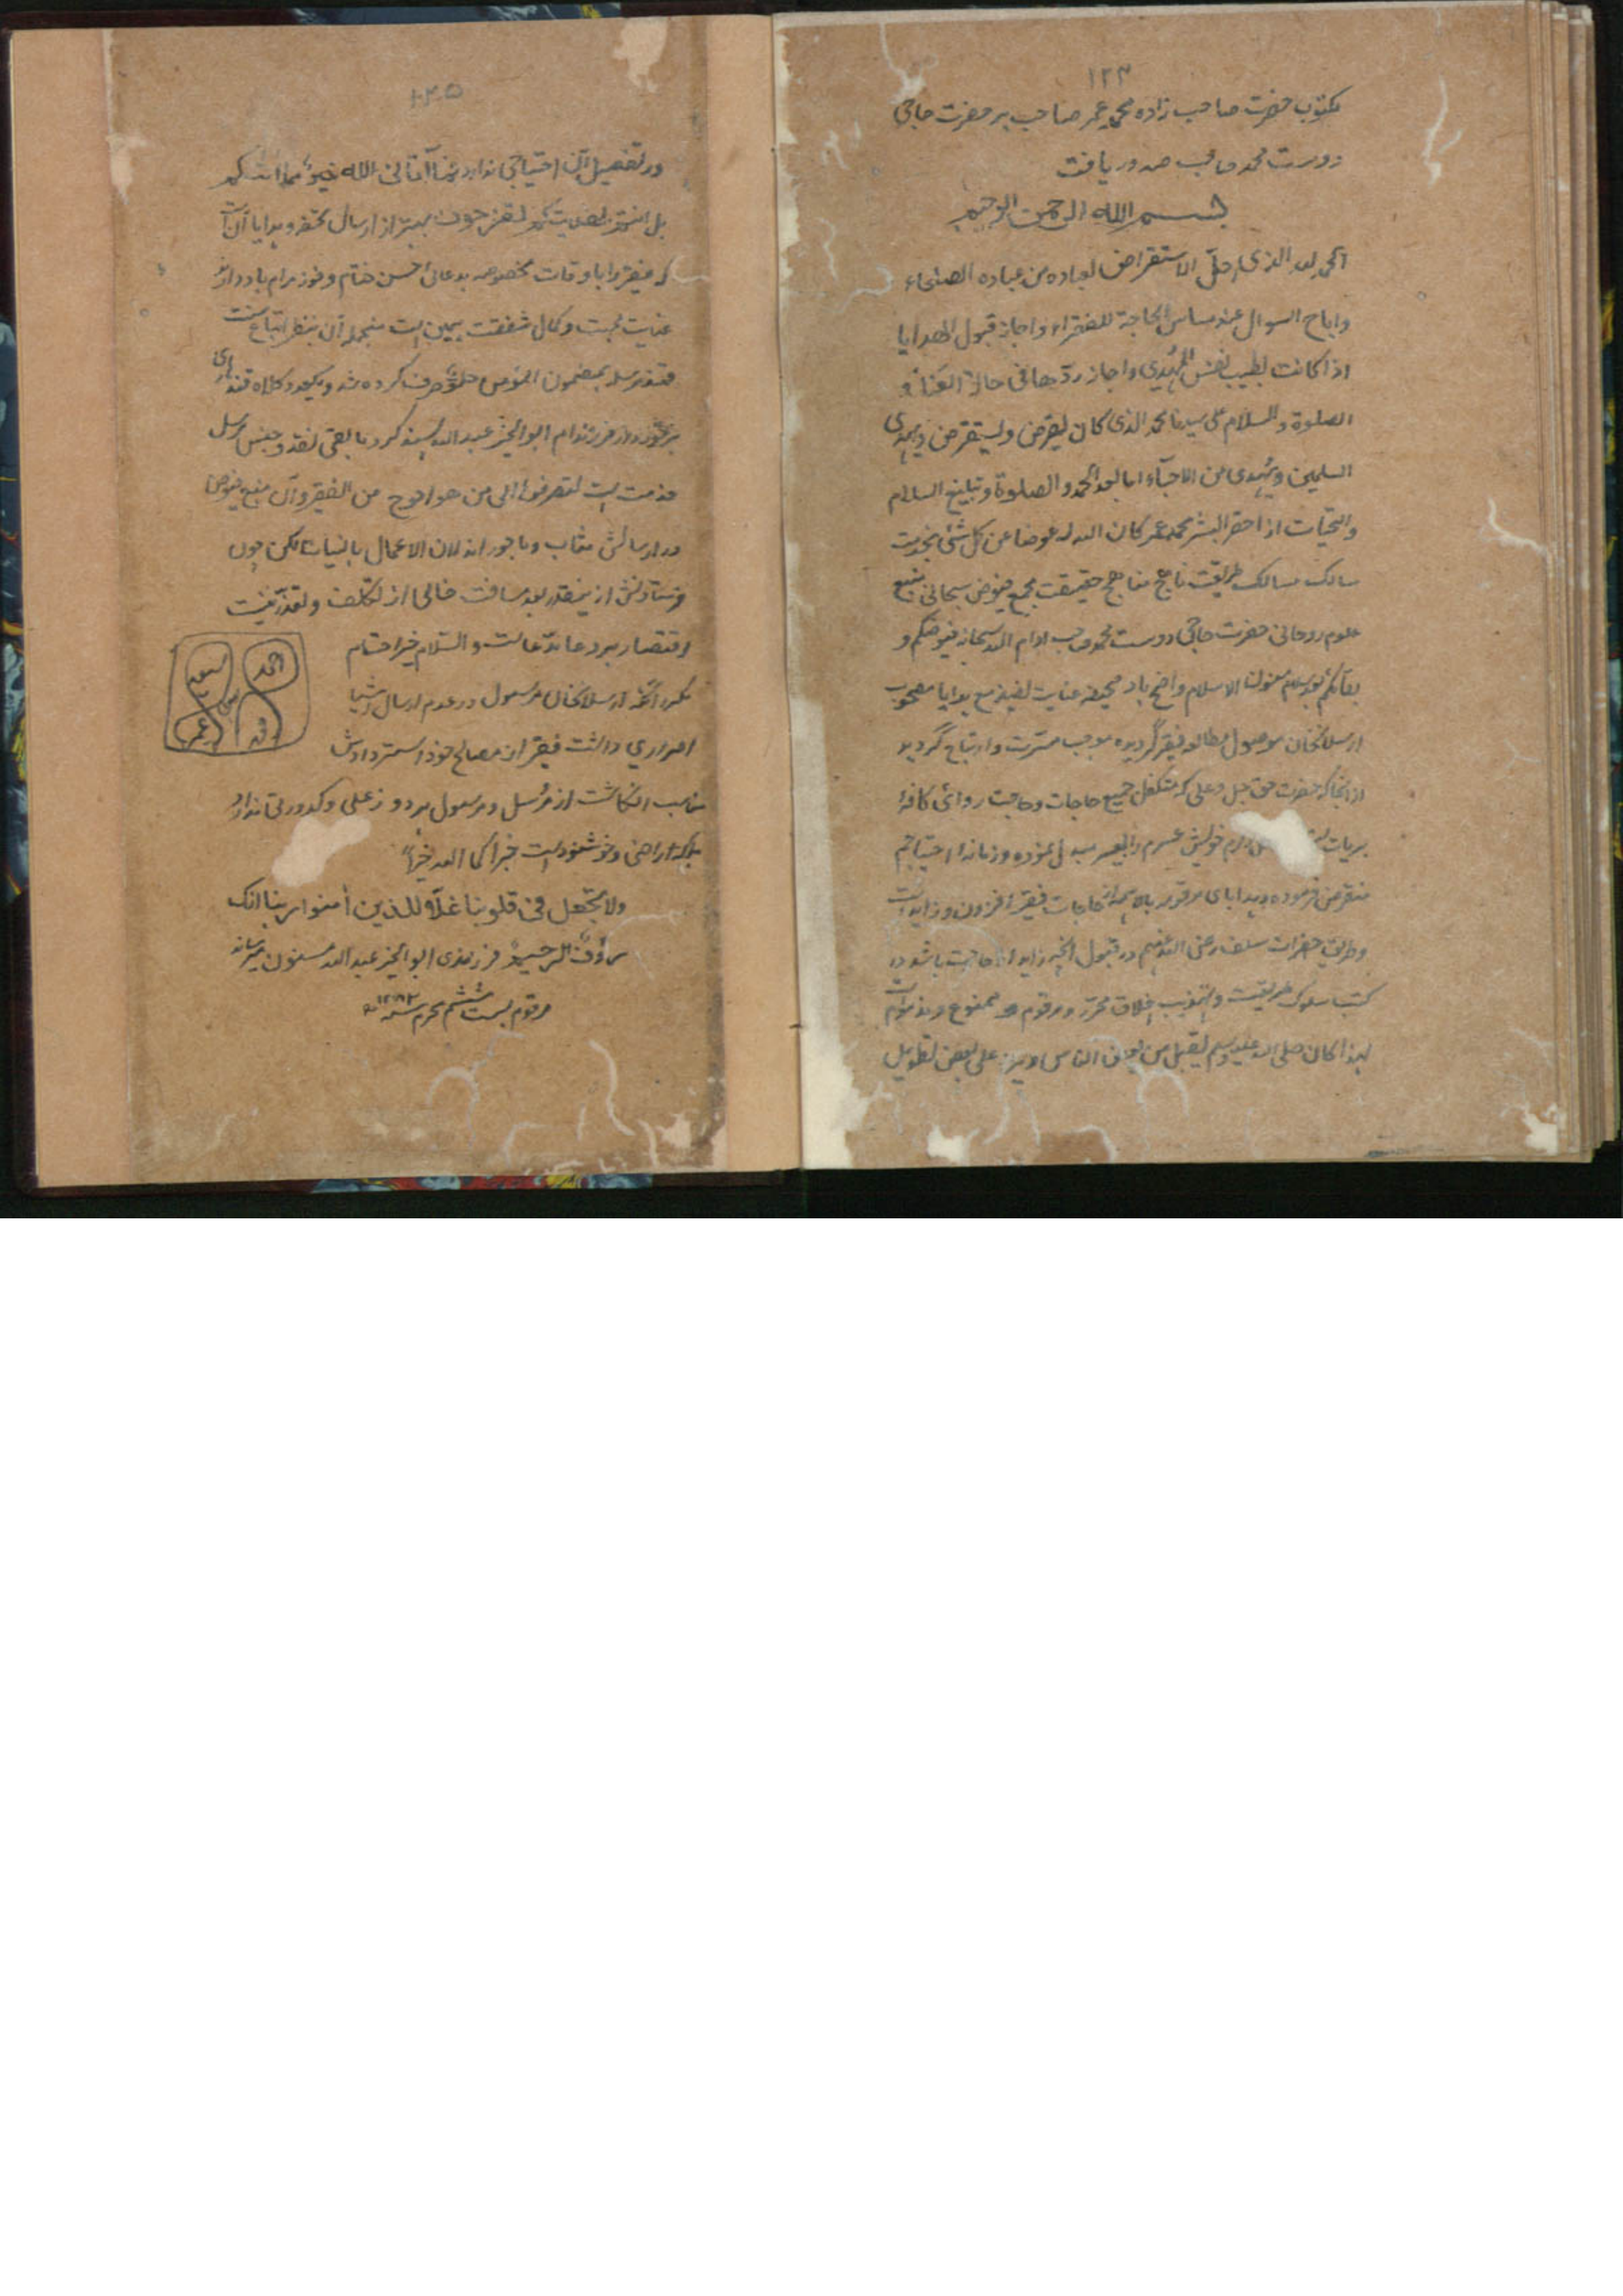 ۱۲۳
مکتوب حضرت صاحب زاده محمد عمر صاحب بر حضرت حاجی
دوست محمد صاحب صدور یافت
بسم الله الرحمن الرحیم
الحمد لله الذی احل الاستقراض لعباده من عباده الصلحاء
واباح السوال عند مساس الحاجة للفقراء واجاز قبول الهدایا
اذا کانت بطیب نفس المهدی واجاز ردها فی حالة الغناء و
الصلوة والسلام علی سیدنا محمد الذی کان یقرض ویستقرض ویهدی
المسلمین ویهدی من الاحباء اما بعد الحمد والصلوة وتبلیغ السلام
والتحیات از احقر البشر محمد عمر کان الله له عوضا عن کل شئ بخدمت
سالک مسالک طریقت ناهج مناهج حقیقت مجمع فیوض سبحانی منبع
علوم روحانی حضرت حاجی دوست محمد صاحب ادام الله سبحانه فیوضکم و
بقائکم بعد سلام مسنون الاسلام واضح باد صحیفه عنایت مع هدایا مصحوب
ارسلانخان موصول مطالعه فقیر گردیده موجب مسرت وابتهاج گردید
از انجا که حضرت حق جل وعلی که متکفل جمیع حاجات وحاجت روائ کافهٔ
بریات خویش عسرم را بیسر مبدل نموده وزمانه احتیاجم
منقرض فرموده وهدایای مرقومه بالا حاجات فقیر افزون و زاید است
وطریق حضرات سلف رضی الله عنهم در قبول انچه زاید از حاجت باشد در
کتب سلوک طریقت وتهذیب اخلاق محرر ومرقوم ممنوع ومذموم است
لهذا کان صلی الله علیه وسلم یقبل من بعض الناس ویرد علی بعض تطویل
۱۲۵
در تفصیل آن احتیاجی ندارد فما آتانی الله خیر مما اتاکم
بل انتم بهدیتکم تفرحون بهتر از ارسال تحفه وهدایا آن است
که فقیر را باوقات مخصوصه بدعائ حسن ختام وفوز مرام یاد دارند
عنایت محبت وکمال شفقت همین است منجمله آن بنظر اتباع سنت
قند مرسله بمضمون المؤمن حلوی صرف کرده شد ویکعدد کلاه قندهاری
برخوردار فرزندام ابوالخیر عبد الله پسند کرد مابقی نقد وجنس مرسل
خدمت است لتصرفه الی من هو احوج من الفقیر وآن منبع فیوض
در ارسالش مثاب وماجور اند لان الاعمال بالنیات لکن چون
فرستادنش از بعد مسافت خالی از تکلف وتعذر نیست
اقتصار بر دعا والسلام خیر اختتام
مکرر آنکه ارسلانخان مرسول در عدم ارسال اشیا
اصراری داشت فقیر از مصالح خود استردادش
مناسب انگاشت از مرسل ومرسول هر دو زعلی وکدورتی ندارد
بلکه راضی وخوشنود است جزاکما الله خیرا
ولا تجعل فی قلوبنا غلا للذین امنوا ربنا انک
رؤف الرحیم فرزندی ابوالخیر عبد الله مسنون میرساند
مرقوم بست ششم محرم سنه ۱۲۸۲
احمد
سعید
عمر